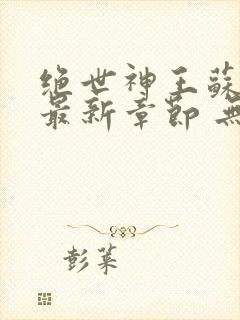 绝世神王蘇
最新章節 無
彭菜